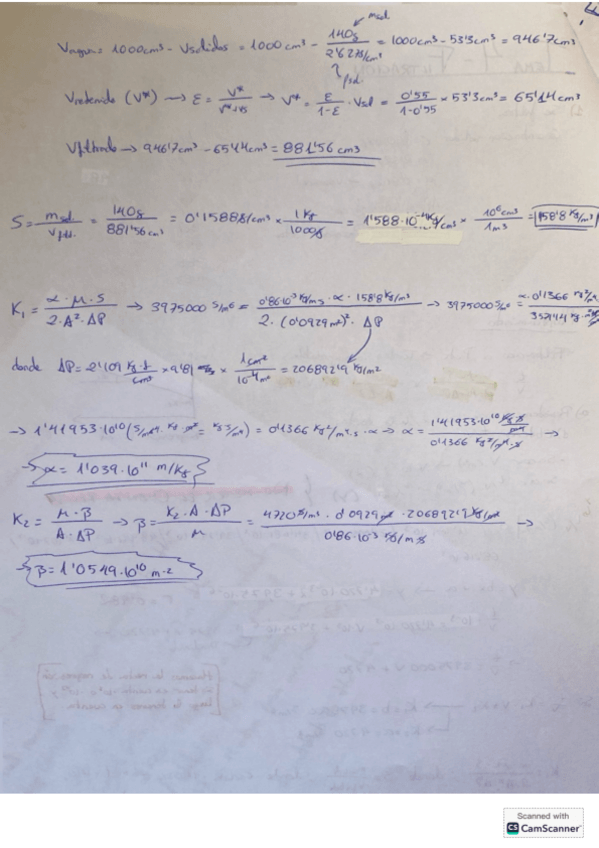 msol
Vagua = 1000cm³ - Vsólidos = 1000cm³ - 140g / 2'627g/cm³ = 1000cm³ - 53'3cm³ = 946'7cm³
ρsol.
Vretenido (V*) → ε = V* / V*+Vs → V* = ε / 1-ε · Vsol = 0'55 / 1-0'55 × 53'3cm³ = 65'14cm³
Vfiltrado → 946'7cm³ - 65'14cm³ = 881'56 cm³
S = msol. / Vfilt. = 140g / 881'56 cm³ = 0'1588g/cm³ × 1 Kg / 1000g = 1'588·10⁻⁴ Kg/cm³ × 10⁶cm³ / 1m³ = 158'8 Kg/m³
K₁ = α·μ·S / 2·A²·ΔP → 3975000 s/m⁶ = 0'86·10⁻³ Kg/m·s · α · 158'8 Kg/m³ / 2·(0'0929m²)²·ΔP → 3975000 s/m⁶ = α·0'1366 Kg²/m⁴·s
donde ΔP = 2'109 Kg·f / cm² × 9'81 × 1cm² / 10⁻⁴m² = 206892'9 Kg/m²
→ 1'41953·10¹⁰ = 0'1366 Kg²/m⁴·s · α → α = 1'41953·10¹⁰ / 0'1366 →
→ α = 1'039·10¹¹ m/Kg
K₂ = μ·β / A·ΔP → β = K₂·A·ΔP / μ = 4720 s/m³ · 0'0929m² · 206892'9 Kg/m·s² / 0'86·10⁻³ Kg/m·s →
→ β = 1'0549·10¹⁰ m⁻²
Scanned with
CS CamScanner